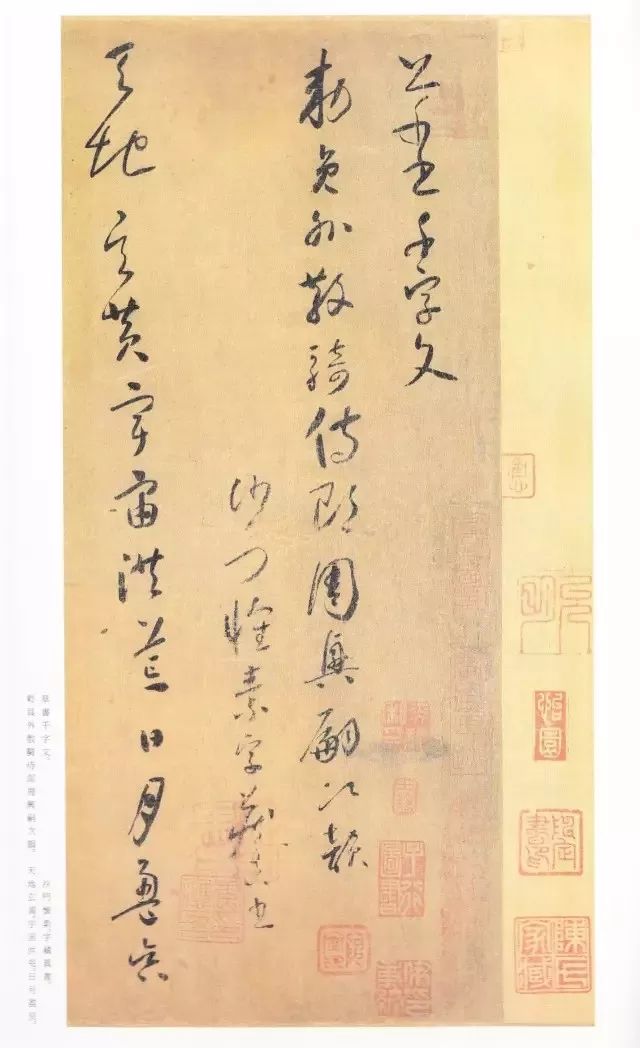 草書千字文
敕員外散騎侍郎周興嗣次韻
沙門懷素字藏真書
天地玄黃宇宙洪荒日月盈昃
怡園
陳氏家藏
草書千字文。 沙門懷素字藏真書。
敕員外散騎侍郎周興嗣次韻。 天地玄黃宇宙洪荒日月盈昃